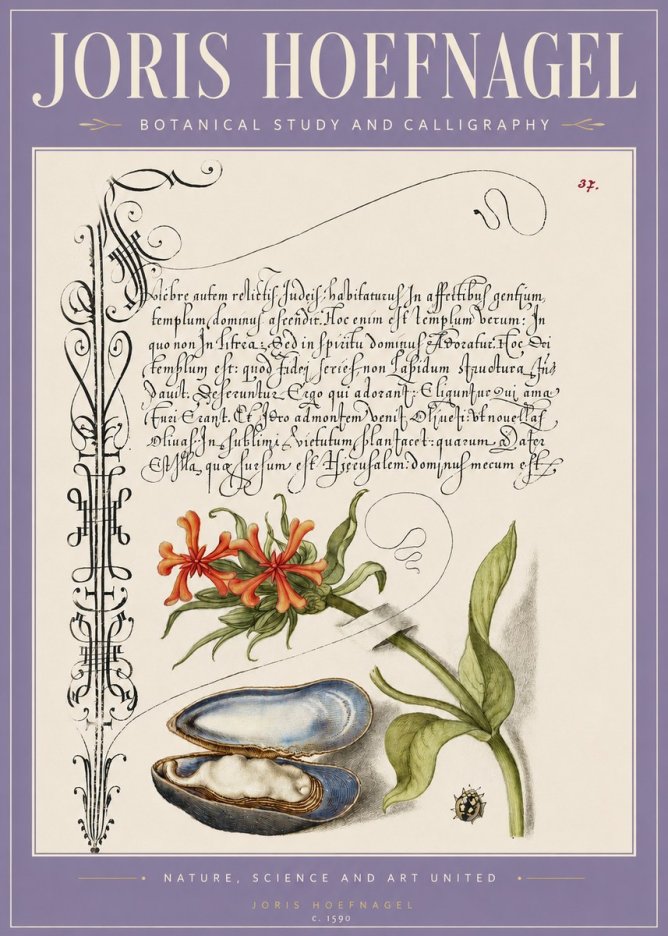 JORIS HOEFNAGEL
BOTANICAL STUDY AND CALLIGRAPHY
37.
autem relictis Judeis: habitaturus In affectibus gentium,
templum, dominus ascendit. Hoc enim est templum verum: In
quo non In litera: Sed in spiritu dominus Adoratur. Hoc Dei
templum est: quod fidei series non Lapidum structura
Deseruntur Ergo qui adorant: Eliguntur qui ama
turi Erant. Et Ideo ad montem venit Oliueti: vt nouellas
Oliuas In sublimi plantaret: quarum Mater
Est Illa, quæ sursum est Hierusalem: dominus mecum est
NATURE, SCIENCE AND ART UNITED
JORIS HOEFNAGEL
c. 1590